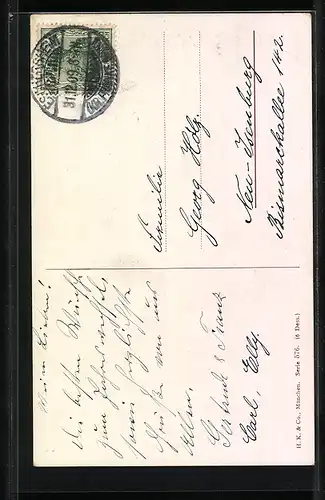 31.12.09.
Familie
Georg Holz.
Neu-Isenburg
Bismarckallee 142.
Meine Lieben!
Die besten Wünsche
zum Jahreswechsel,
sowie herzlichste
Grüße von uns
allen.
Gertrud & Franz
Carl, Elly.
H. K. & Co., München. Serie 376. (6 Dess.)